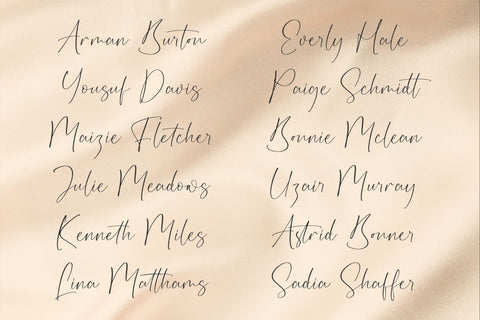 Arman Burton
Yousuf Davis
Maizie Fletcher
Julie Meadows
Kenneth Miles
Lina Matthams
Everly Hale
Paige Schmidt
Bonnie Mclean
Uzair Murray
Astrid Bonner
Sadia Shaffer